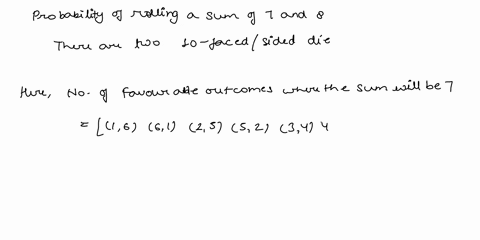 Probability of rolling a sum of 7 and 8
There are two 10-faced/sided die
Here, No. of favourable outcomes where the sum will be 7
= [(1,6) (6,1) (2,5) (5,2) (3,4) 4